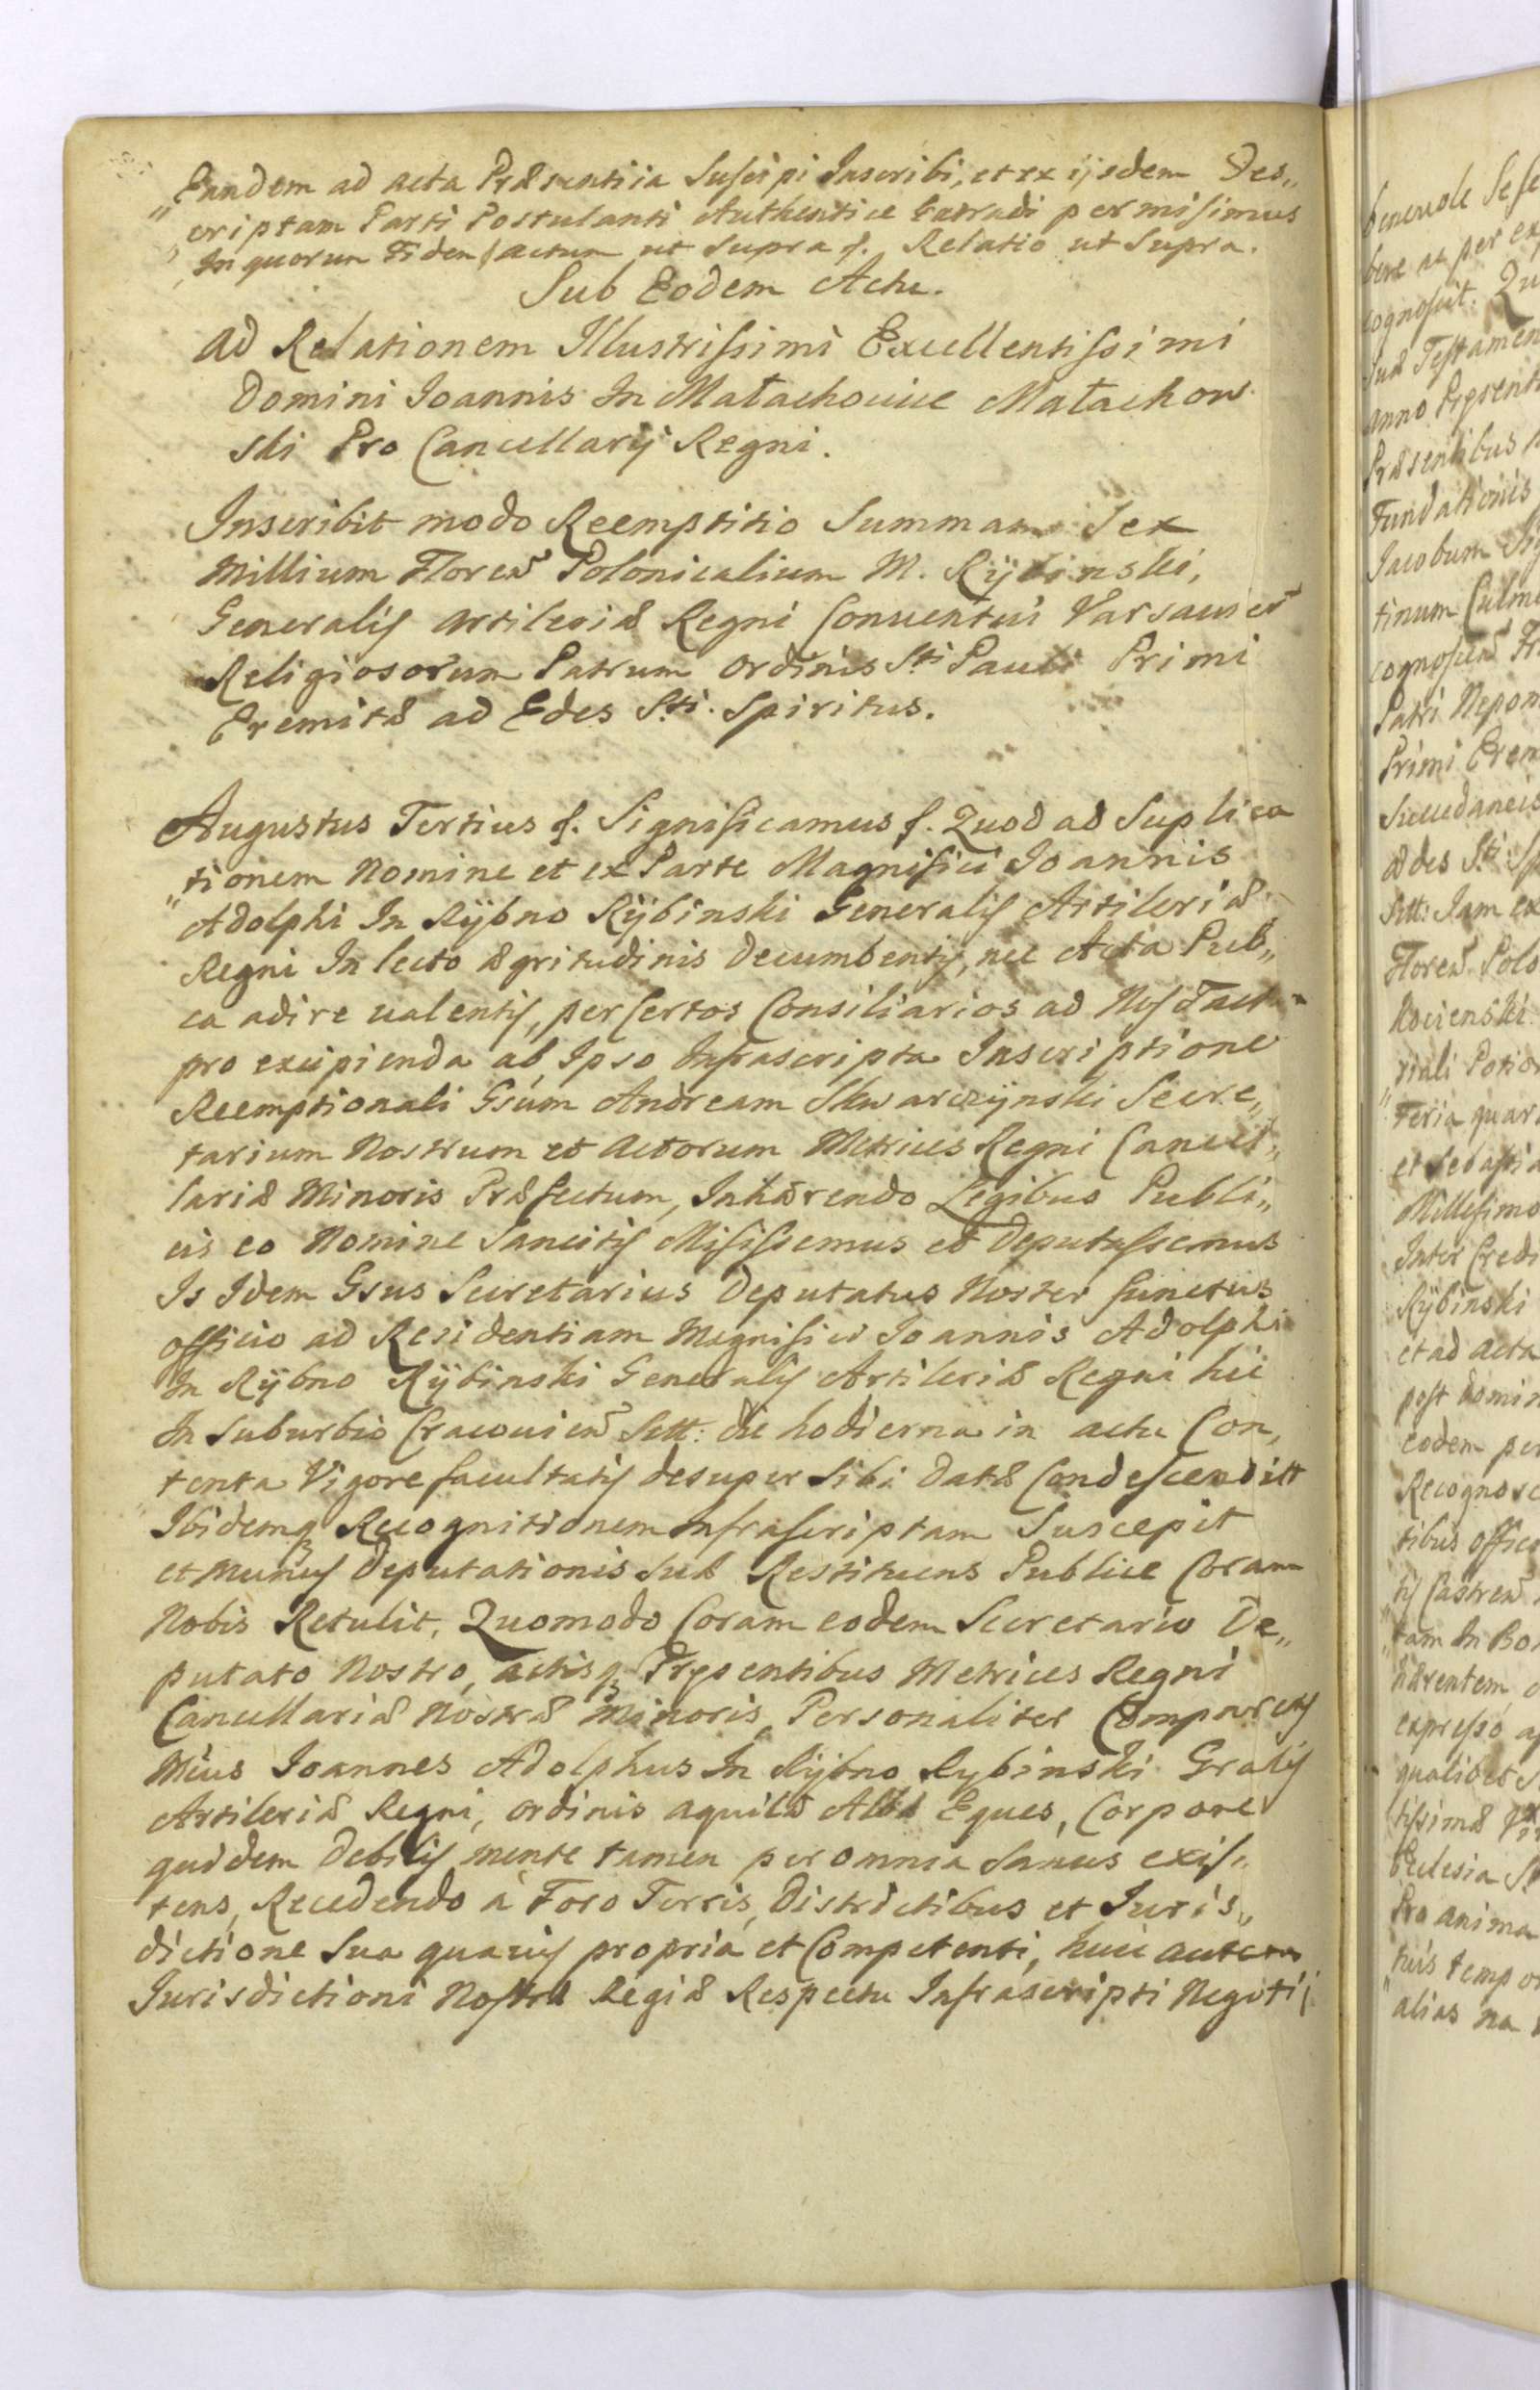 Eandem ad acta Præsentiia Suscipi Inscribi, et ex ijsdem Des„
„criptam Parti Postulanti Authentice Extradi permisimus
In quorum Fidem /actum ut Supra f. Relatio ut Supra.
Sub Eodem Actu.
Ad Relationem Illustrissimi Excellentissimi
Domini Joannis In Małachowice Małachow
ski Pro Cancellarij Regni.
Inscribit modo Reemptitio Summam Sex
Millium Floren Polonicalium M. Rÿbinski,
Generalis Artileriæ Regni Conventui Varsavien
Religiosorum Patrum Ordinis Sti Pauli Primi
Eremitæ ad Edes Sti. Spiritus.
Augustus Tertius f. Significamus f. Quod ad Suplica
„tionem Nomine et ex Parte Magnifici Joannis
Adolphi In Rÿbno Rÿbinski Generalis Artileriæ
Regni In lecto ægritudinis Decumbentis, nec Acta Pub„
ca adire valentis, per Certos Consiliarios ad Nos Fact
pro excipienda ab Ipso Infrascripta Inscriptione
Reemptionali Gsum Andream Skwarczÿnski Secre„
tarium Nostrum et Actorum Metrices Regni Cancel„
lariæ Minoris Præfectum, Inhærendo Legibus Publi„
cis eo Nomine Sancitis Misissemus et Deputassemus
Is Idem Gsus Secretarius Deputatus Noster functus
officio ad Residentiam Magnifici Joannis Adolphi
In Rÿbno Rÿbinski Generalis Artileriæ Regni hic
In Suburbio Cracovien Sitt: die hodierna in actu Con„
tenta Vigore facultatis desuper Sibi Datæ Condescendit
Ibidemq Recognitionem Infrascriptam Suscepit
et Munus Deputationis Suæ Restituens Publice Coram
Nobis Retulit, Quomodo Coram eodem Secretario De„
putato Nostro, actisq Præsentibus Metrices Regni
Cancellariæ Nostræ Minoris, Personaliter Comparens
Mcus Joannes Adolphus In Rÿbno Rybinski Gralis
Artileriæ Regni, Ordinis Aquilæ Albæ Eques, Corpore
quidem Debilis mente tamen per omnia Sanus exis„
tens, Recedendo à Foro Terris, Districtibus et Juris„
dictione Sua quavis propria et Competenti, huic autem
Jurisdictioni Nostræ Regiæ Respectu Infrascripti Negotij
benevole Sese
bene ac per ex
cognoscit. Qu
suæ Testamen
Anno Præsent
Præsentibus
Fundationis
Jacobum
tinum Culm
cognoscen
Patri Nepom
Primi Erem
Succedaneis
ædes Sti Sp
Sitt: Jam ex
Floren Polo
Kocienski
riali Potior
Feria quar
et Sebastia
Millesimo
Inter Credi
Rÿbinski
et ad Acta
post Domin
eodem per
Recognosc
tibus Offic
tis Castren
tam In Bon
hærentem
expresso a
qualibet S
tissimæ
Eclesia S
Pro anima
tuis tempor
alias na